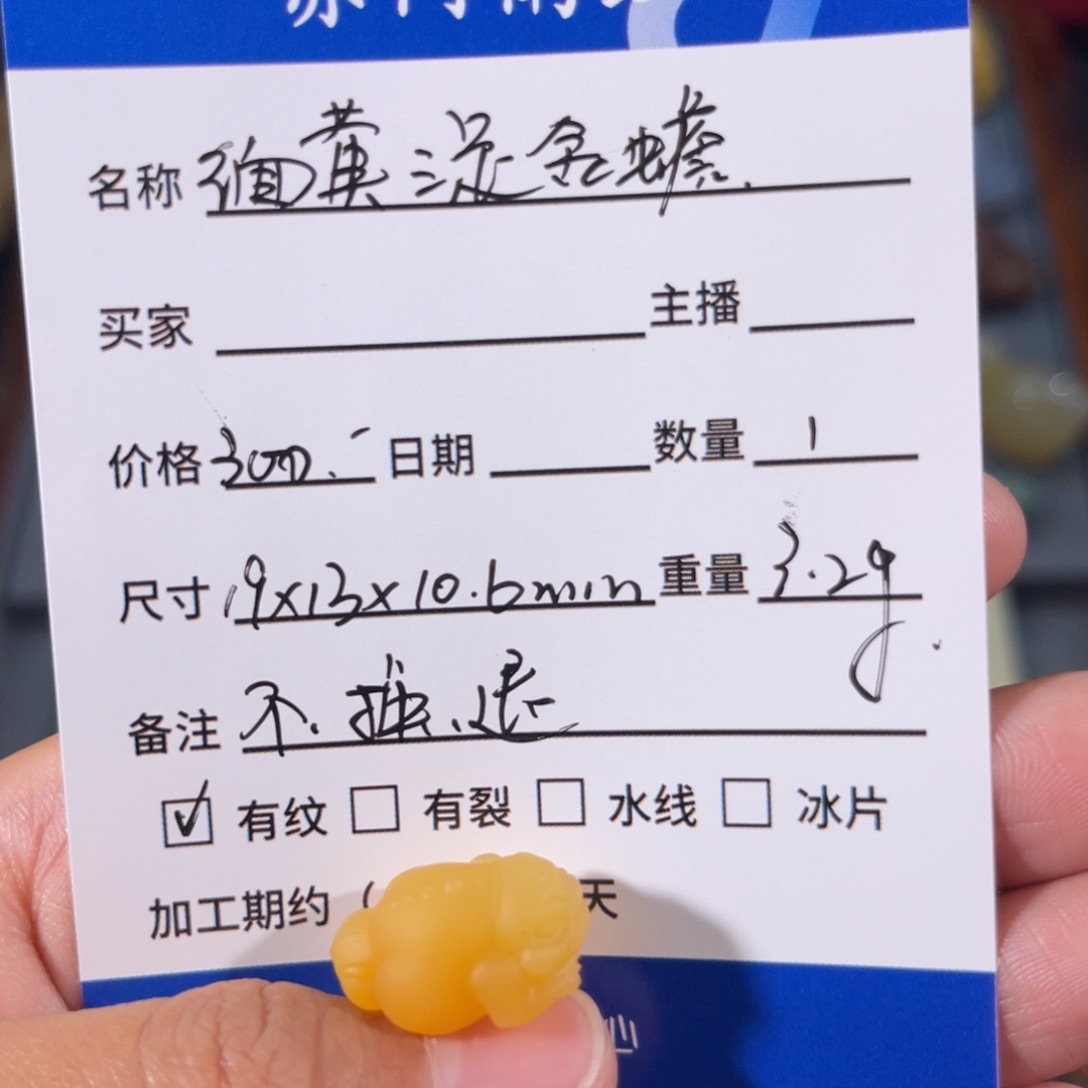 名称 缅黄 设 金蟾.
买家 主播
价格 3000.- 日期 数量 1
尺寸 19x13x10.6mm 重量 3.2g.
备注 不.换.退
☑ 有纹 □ 有裂 □ 水线 □ 冰片
加工期约 ( 天
心